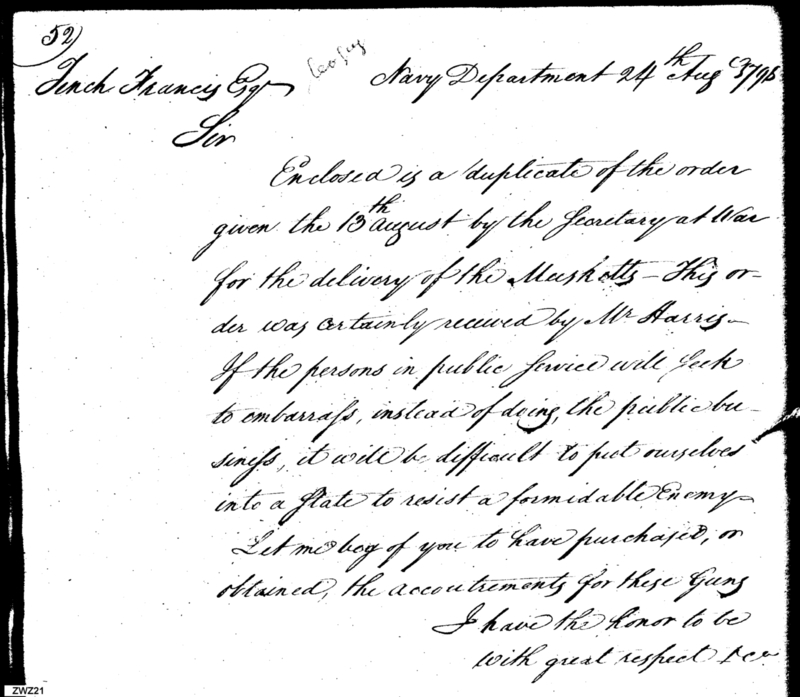 52
Tench Francis Esqr Navy Department 24th Augt 1798
Sir
Enclosed is a duplicate of the order
given the 13th August by the Secretary at War
for the delivery of the Musketts — This or-
der was certainly received by Mr Harris —
If the persons in public Service will seek
to embarrass, instead of doing, the public bu-
siness, it will be difficult to put ourselves
into a State to resist a formidable Enemy —
Let me beg of you to have purchased, or
obtained, the accoutrements for these Guns
I have the honor to be
with great respect &ca
ZWZ21